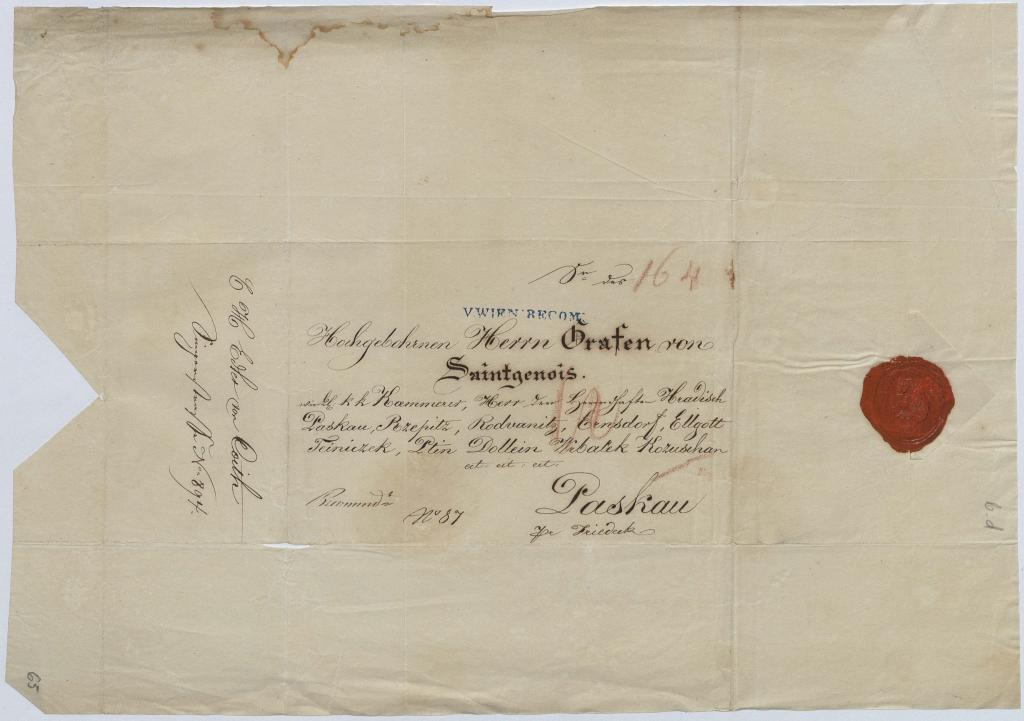 Sr des 164
V.WIEN RECOM:
Hochgebohrnen Herrn Grafen von
Saintgenois.
k k Kaemmerer, Herr der Herrschaften Hradisch
Paskau, Rzepitz, Rodvanitz, Ernsdorf, Ellgott
Teiniczek, Ptin Dollein Wrbatek Kozuschan
cet. cet. cet.
Paskau
pr Friedek
No 87
E H Edler von Coith
No 894.
6d
65